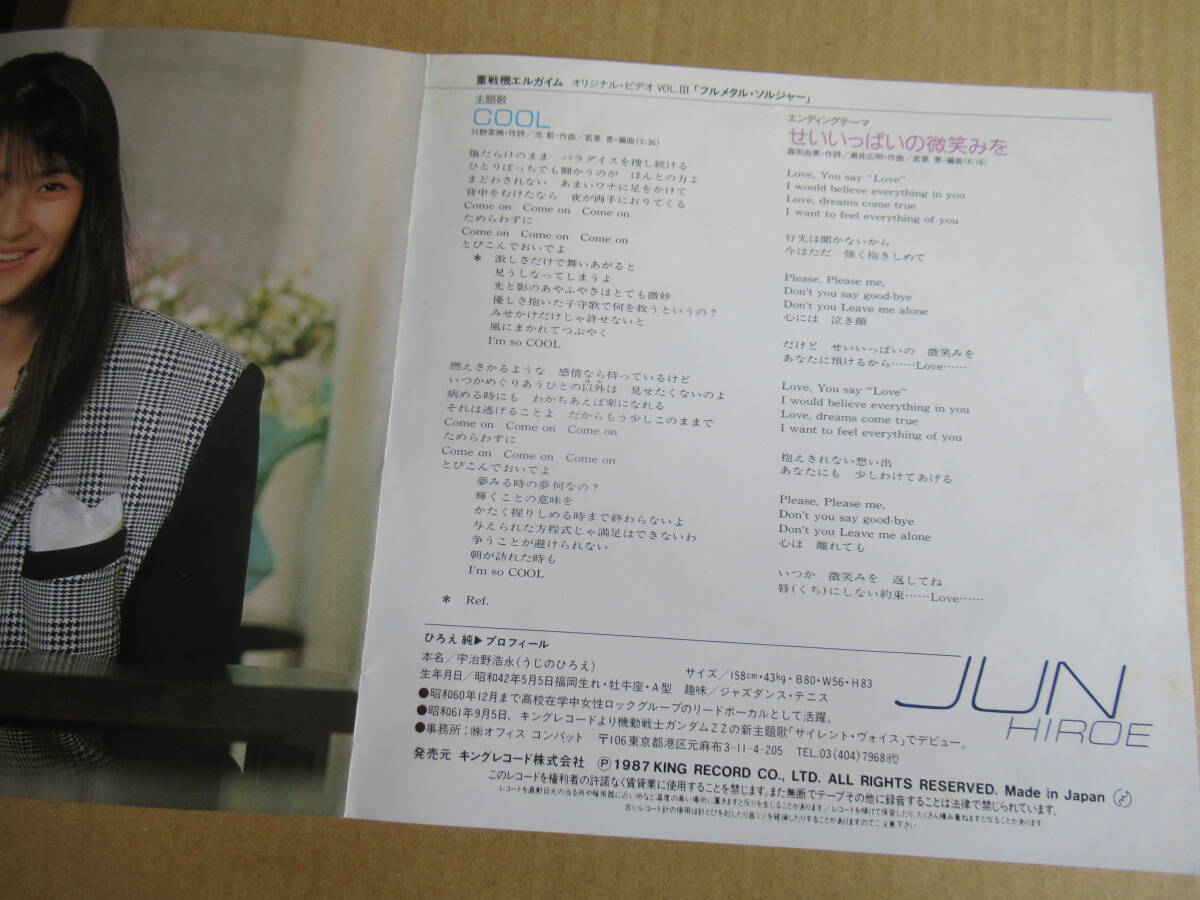 重戦機エルガイム オリジナル・ビデオ VOL.III「フルメタル・ソルジャー」
主題歌
COOL
只野菜摘・作詩／池 毅・作曲／若草 恵・編曲(3:36)
傷だらけのまま パラダイスを捜し続ける
ひとりぼっちでも闘かうのが ほんとの力よ
まどわされない あまいワナに足をかけて
背中をむけたなら 夜が両手におりてくる
Come on Come on Come on
ためらわずに
Come on Come on Come on
とびこんでおいでよ
* 激しさだけで舞いあがると
見うしなってしまうよ
光と影のあやふやさはとても微妙
優しさ抱いた子守歌で何を救うというの？
みせかけだけじゃ許せないと
風にまかれてつぶやく
I'm so COOL
燃えさかるような 感情なら持っているけど
いつかめぐりあうひとの以外は 見せたくないのよ
病める時にも わかちあえば楽になれる
それは逃げることよ だからもう少しこのままで
Come on Come on Come on
ためらわずに
Come on Come on Come on
とびこんでおいでよ
夢みる時の夢何なの？
輝くことの意味を
かたく握りしめる時まで終わらないよ
与えられた方程式じゃ満足はできないわ
争うことが避けられない
朝が訪れた時も
I'm so COOL
* Ref.
エンディングテーマ
せいいっぱいの微笑みを
森田由美・作詩／瀬井広明・作曲／若草 恵・編曲(4:16)
Love, You say “Love”
I would believe everything in you
Love, dreams come true
I want to feel everything of you
行先は聞かないから
今はただ 強く抱きしめて
Please, Please me,
Don't you say good-bye
Don't you Leave me alone
心には 泣き顔
だけど せいいっぱいの 微笑みを
あなたに預けるから……Love……
Love, You say “Love”
I would believe everything in you
Love, dreams come true
I want to feel everything of you
抱えきれない想い出
あなたにも 少しわけてあげる
Please, Please me,
Don't you say good-bye
Don't you Leave me alone
心は 離れても
いつか 微笑みを 返してね
唇(くち)にしない約束……Love……
ひろえ 純▶プロフィール
本名／宇治野浩永(うじのひろえ) サイズ／158cm・43kg・B80・W56・H83
生年月日／昭和42年5月5日福岡生れ・牡牛座・A型 趣味／ジャズダンス・テニス
●昭和60年12月まで高校在学中女性ロックグループのリードボーカルとして活躍。
●昭和61年9月5日、キングレコードより機動戦士ガンダムZZの新主題歌「サイレント・ヴォイス」でデビュー。
●事務所：㈱オフィス コンバット 〒106東京都港区元麻布3-11-4-205 TEL.03(404)7968㈹
JUN
HIROE
発売元 キングレコード株式会社 Ⓟ1987 KING RECORD CO., LTD. ALL RIGHTS RESERVED. Made in Japan
このレコードを権利者の許諾なく賃貸業に使用することを禁じます。また無断でテープその他に録音することは法律で禁じられています。
レコードを直射日光の当る所や暖房器に近い所など温度の高い場所に置きますと反りを生じることがあります／レコードを傾けて保管したり、たくさん積み重ねますと反ることがあります
古いレコード針の使用は針とびを起したり音ミゾを破損したりすることがありますのでご注意下さい